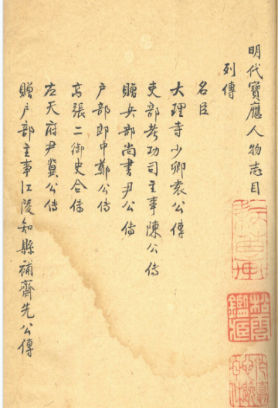 明代寶應人物志目
列傳
名臣
大理寺少卿袁公傳
吏部考功司主事陳公傳
贈兵部尚書尹公傳
户部郎中鄭公傳
高張二御史合傳
應天府尹冀公傳
贈户部主事江陵知縣補齋先公傳